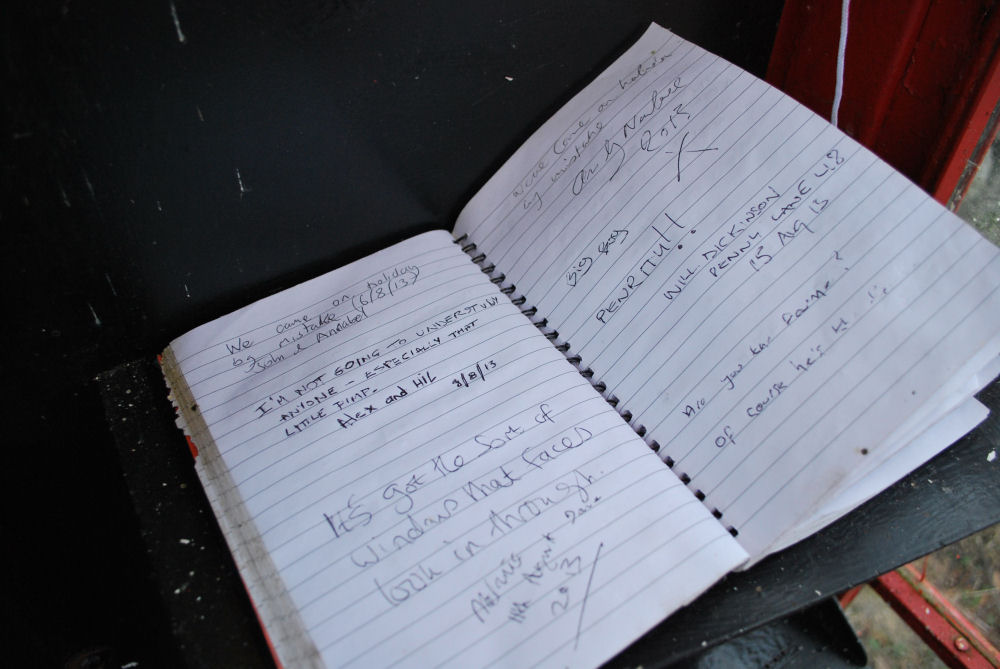 We came on holiday
by mistake (6/8/13)
John & Annabel
I'M NOT GOING TO UNDERSTUDY
ANYONE - ESPECIALLY THAT
LITTLE PIMP.
Alex and Hil 8/8/13
It's got the sort of
windows that faces
look in through.
August
2013
We've come on holiday
by mistake
2013
X
Big Boy
PENRITH!!
WILL DICKINSON
PENNY LANE L18
15 AUG 13
Are you the Farmer?
of course he's the